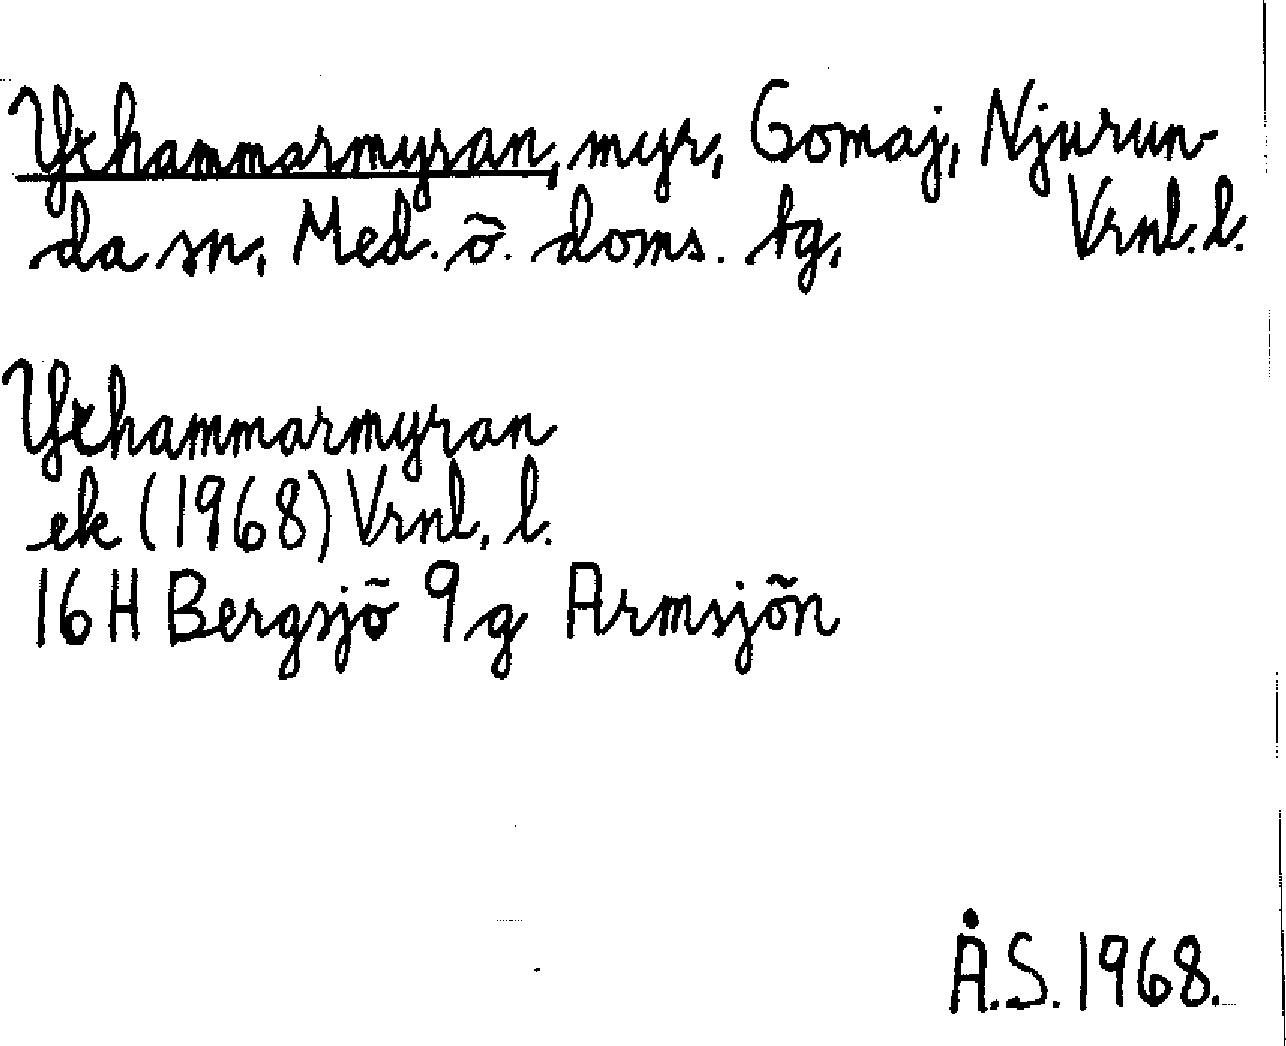 Ythammarmyran, myr, Gomaj, Njurun-
da sn, Med. ö. doms. tg, Vrnl. l.
Ythammarmyran
ek (1968) Vrnl. l.
16 H Bergsjö 9 g Armsjön
Å.S. 1968.